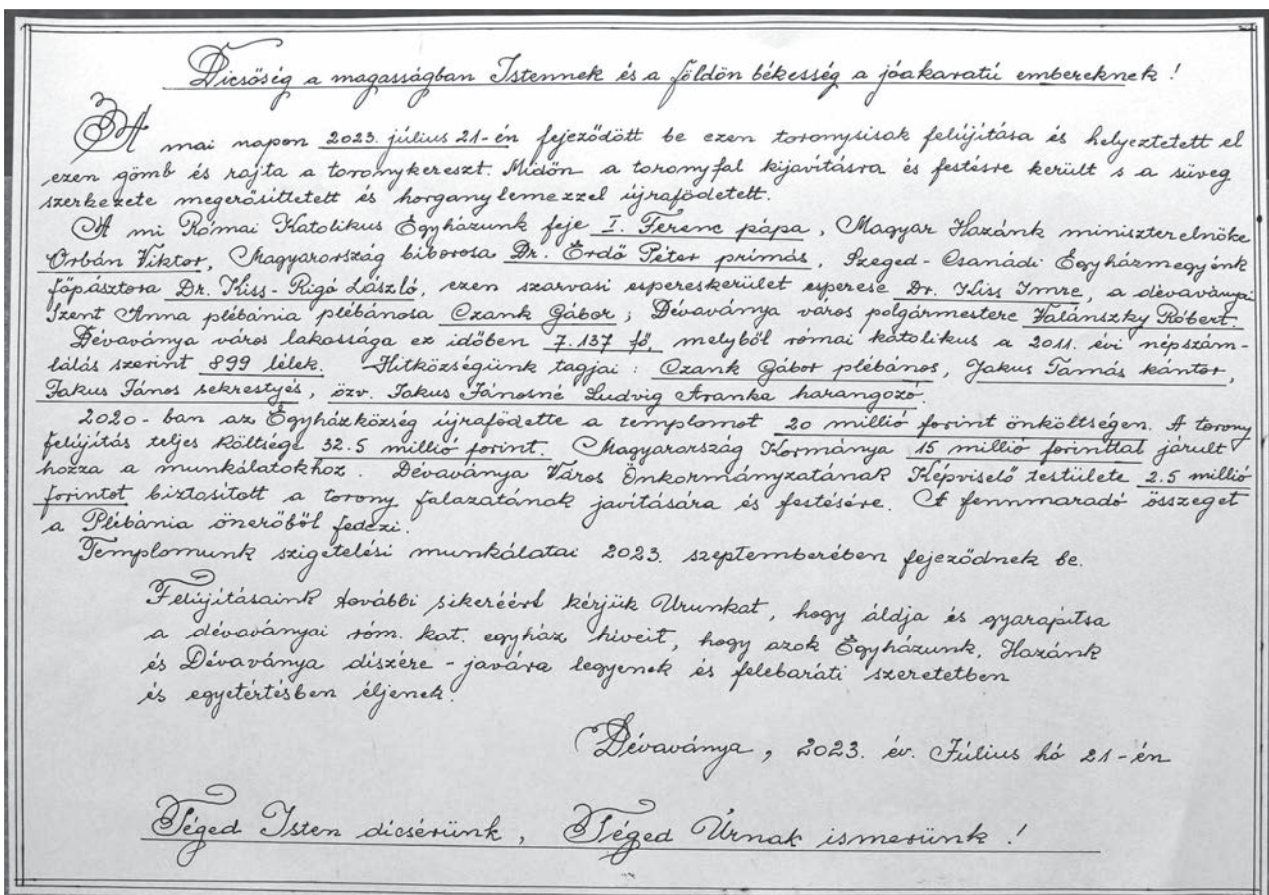 Dicsőség a magasságban Istennek és a földön békesség a jóakaratú embereknek !
A mai napon 2023. július 21-én fejeződött be ezen toronysisak felújítása és helyeztetett el
ezen gömb és rajta a toronykereszt. Midőn a toronyfal kijavításra és festésre került s a süveg
szerkezete megerősíttetett és horganylemezzel újrafödetett.
A mi Római Katolikus Egyházunk feje I. Ferenc pápa, Magyar Hazánk miniszterelnöke
Orbán Viktor, Magyarország bíborosa Dr. Erdő Péter prímás, Szeged-Csanádi Egyházmegyénk
főpásztora Dr. Kiss-Rigó László, ezen szarvasi espereskerület esperese Dr. Kiss Imre, a dévaványai
Szent Anna plébánia plébánosa Czank Gábor; Dévaványa város polgármestere Valánszky Róbert.
Dévaványa város lakossága ez időben 7.137 fő, melyből római katolikus a 2011. évi népszám-
lálás szerint 899 lélek. Hitközségünk tagjai : Czank Gábor plébános, Jakus Tamás kántor,
Jakus János sekrestyés, özv. Jakus Jánosné Ludvig Aranka harangozó.
2020-ban az Egyházközség újrafödette a templomot 20 millió forint önköltségen. A torony
felújítás teljes költsége 32.5 millió forint. Magyarország Kormánya 15 millió forinttal járult
hozza a munkálatokhoz. Dévaványa Város Önkormányzatának Képviselő testülete 2.5 millió
forintot biztosított a torony falazatának javítására és festésére. A fennmaradó összeget
a Plébánia önerőből fedezi.
Templomunk szigetelési munkálatai 2023. szeptemberében fejeződnek be.
Felújításaink további sikeréért kérjük Urunkat, hogy áldja és gyarapítsa
a dévaványai róm. kat. egyház híveit, hogy azok Egyházunk, Hazánk
és Dévaványa díszére - javára legyenek és felebaráti szeretetben
és egyetértésben éljenek.
Dévaványa, 2023. év. Július hó 21-én
Téged Isten dicsérünk, Téged Úrnak ismerünk !